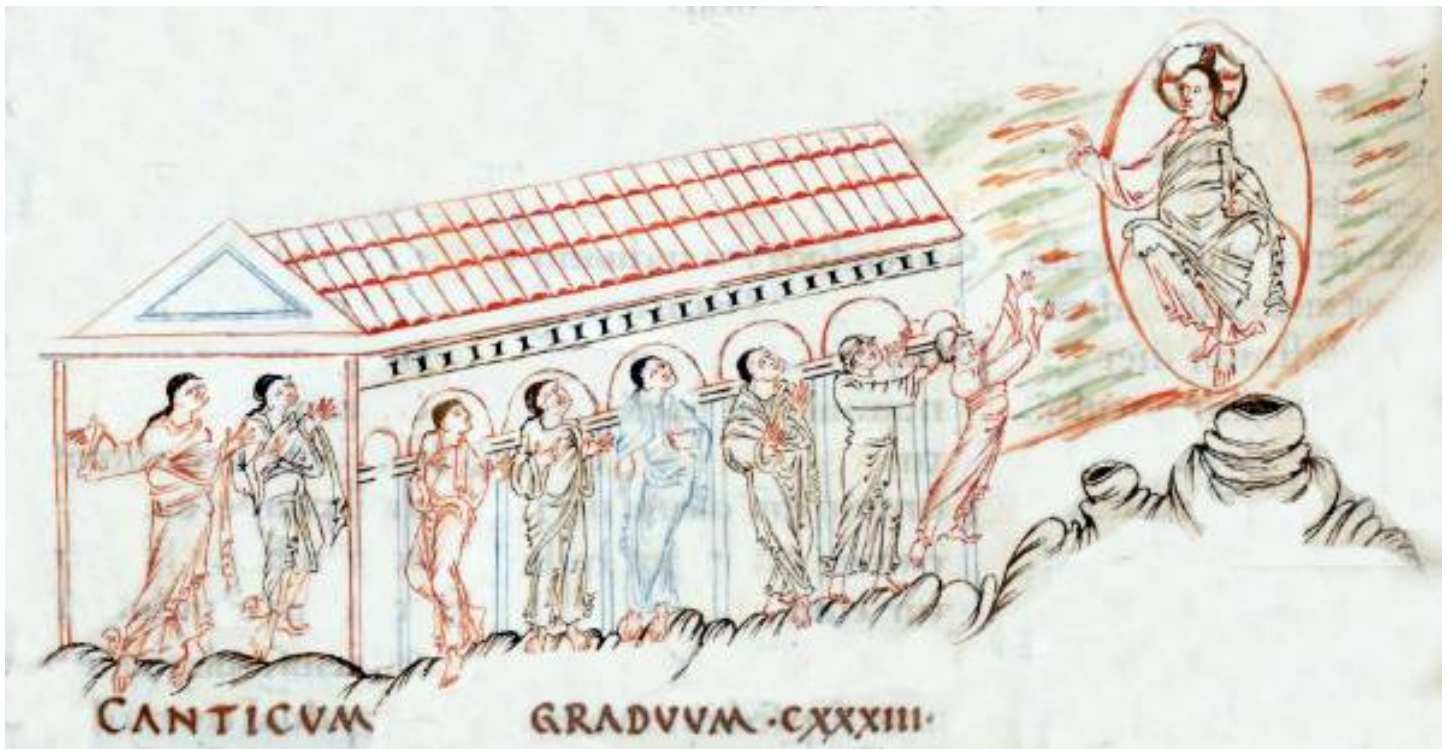 CANTICVM GRADVVM ·CXXXIII·